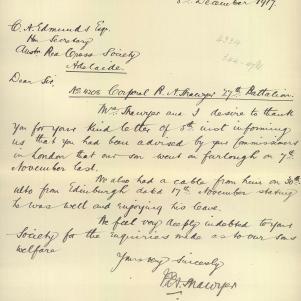 December 1917.
C. A. Edmunds Esq.
Hon Secretary
Austn Red Cross Society
Adelaide.
Dear Sir,
Corporal R. N. Thawyer 27th Battalion.
Mrs Thawyer and I desire to thank
you for your kind letter of 5th inst informing
us that you had been advised by your Commissioners
in London that our son went on furlough on 7th
November last.
We also had a cable from him on 30th
ulto from Edinburgh dated 17th November stating
he was well and enjoying his leave.
We feel very deeply indebted to your
Society for the inquiries made as to our sons
welfare
Yours very sincerely
Thawyer